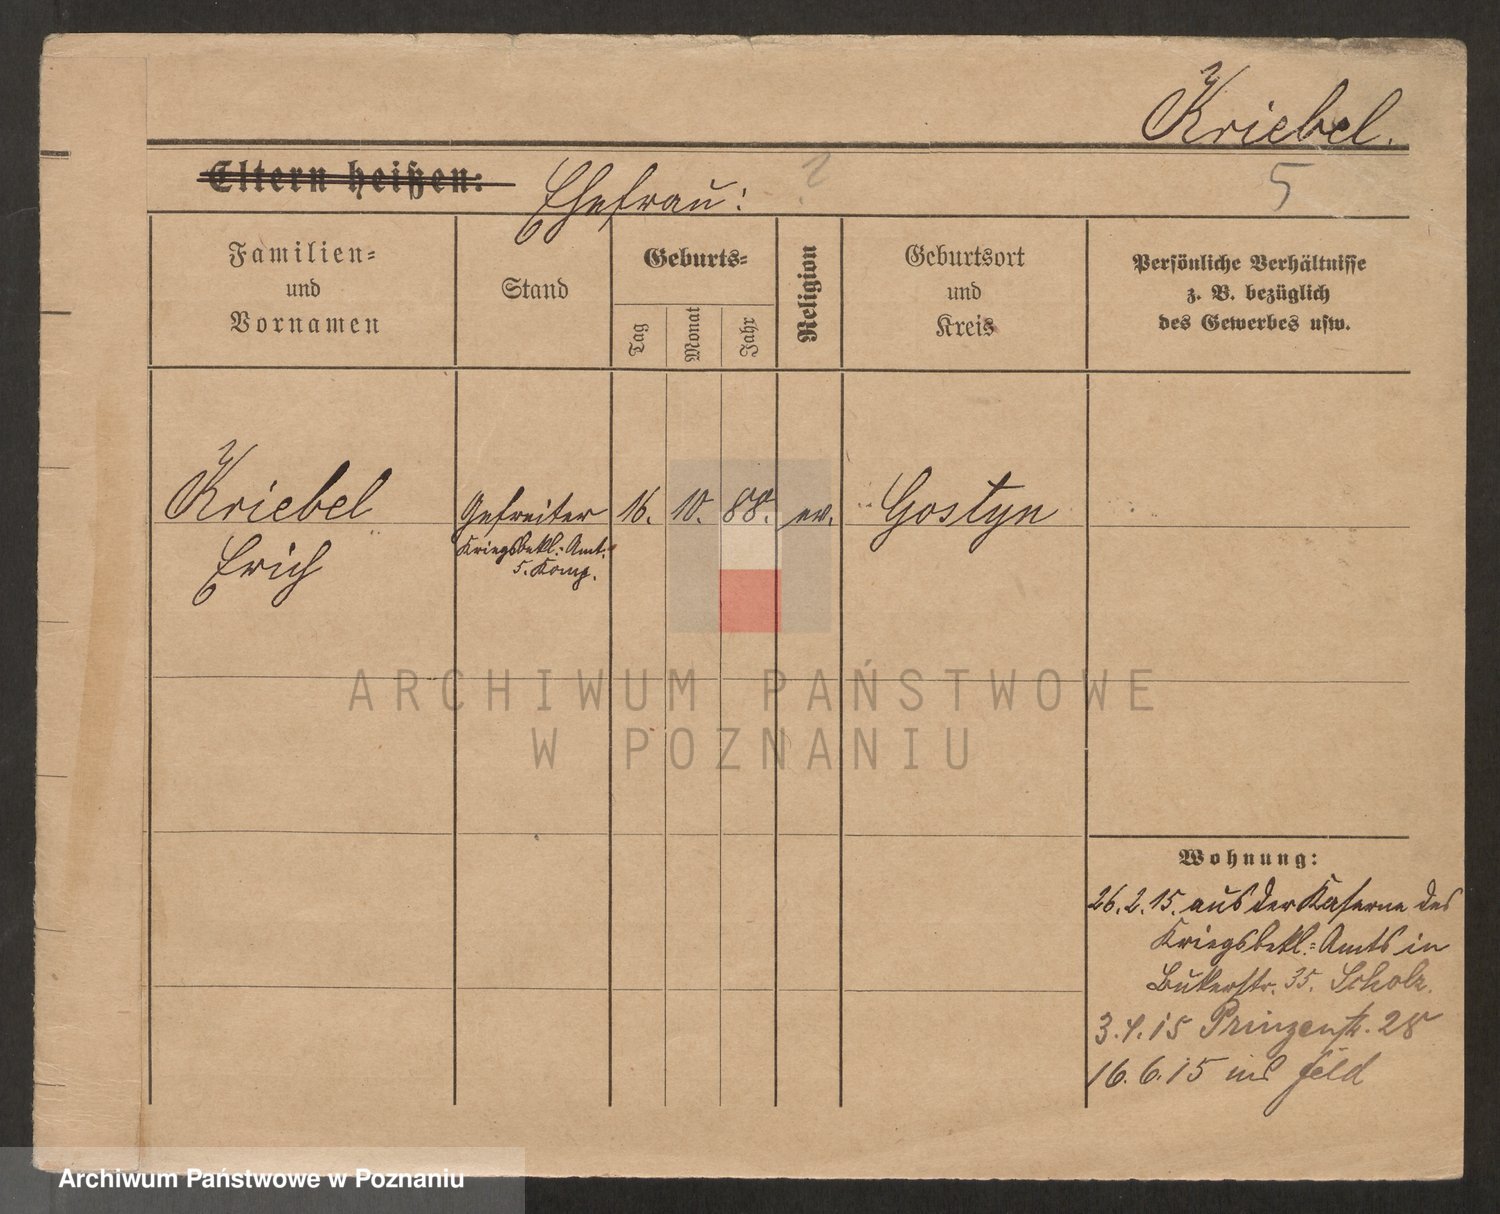 Kriebel.
Eltern heißen: Ehefrau: ?
5
Familien=
und
Vornamen
Stand
Geburts=
Tag
Monat
Jahr
Religion
Geburtsort
und
Kreis
Persönliche Verhältnisse
z. B. bezüglich
des Gewerbes usw.
Kriebel Gefreiter 16. 10. 88. ev. Gostyn
Erich
Kriegsbekl.-Amt.
5. Komp.
ARCHIWUM PAŃSTWOWE
W POZNANIU
Wohnung:
26.2.15. aus der Kaserne des
Kriegsbekl.=Amts in
Bukerstr. 35. Scholz.
3.4.15 Prinzenstr. 28
16.6.15 ins Feld
Archiwum Państwowe w Poznaniu